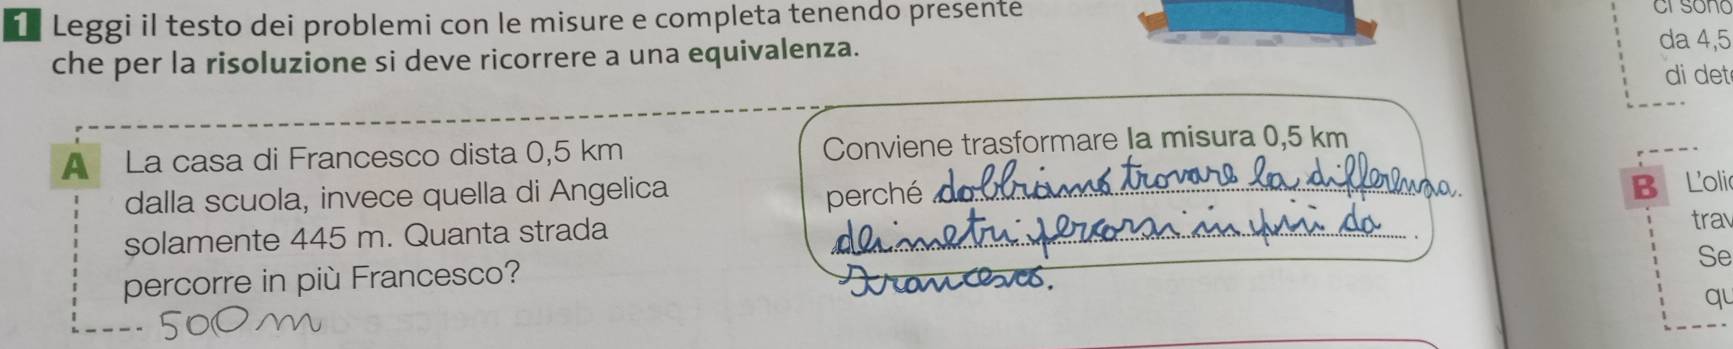 1 Leggi il testo dei problemi con le misure e completa tenendo presente
che per la risoluzione si deve ricorrere a una equivalenza.
A La casa di Francesco dista 0,5 km
dalla scuola, invece quella di Angelica
solamente 445 m. Quanta strada
percorre in più Francesco?
500 m
Conviene trasformare la misura 0,5 km
perché dobbiamo trovare la differenza.
dei metri percorsi in più da
Francesco.
ci sono
da 4,5
di det
B L'oli
trav
Se
qu